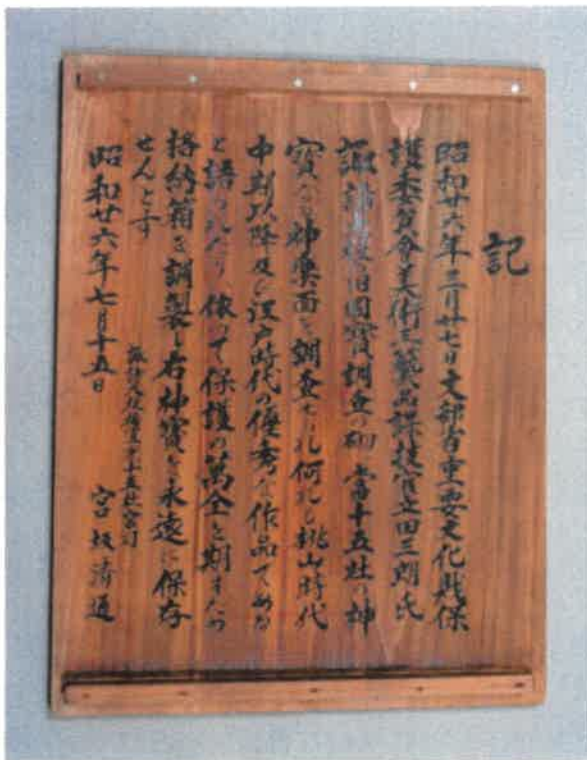 記
昭和廿六年三月廿七日文部省重要文化財保
護委員会美術工藝品課技官 田三朗氏
諏訪 旧国寶調査の砌當十五社の神
寶 神樂面を調査せられ何れも桃山時代
中期以降及び江戸時代の優秀 作品である
と語られたり、依って保護の萬全を期すため
格納箱を調製し右神寶を永遠に保存
せんとす
十五社宮司
昭和廿六年七月十五日 宮坂清通